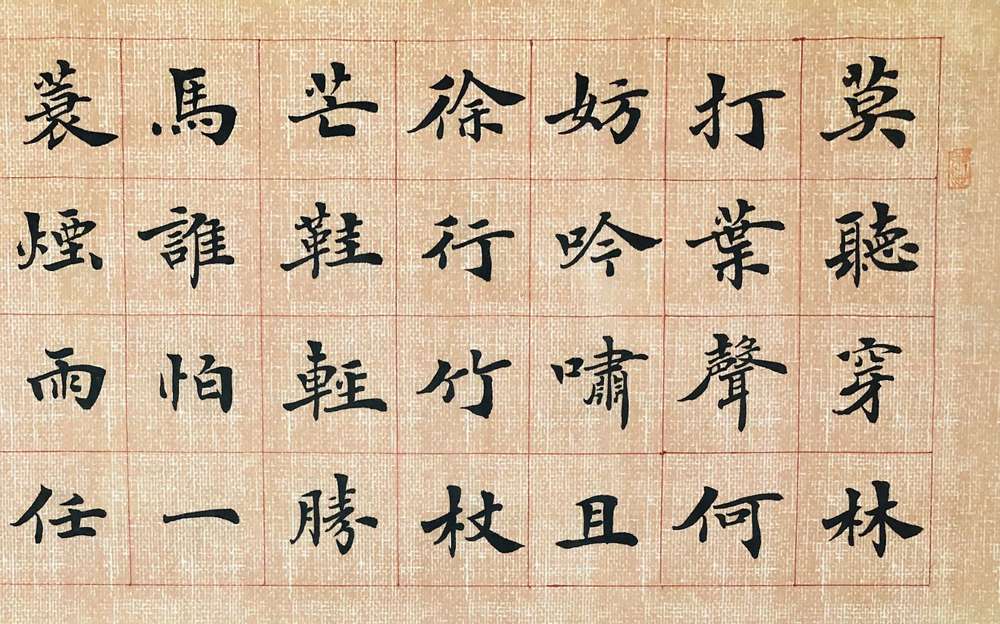 莫聽穿林
打葉聲何
妨吟嘯且
徐行竹杖
芒鞋輕勝
馬誰怕一
蓑煙雨任